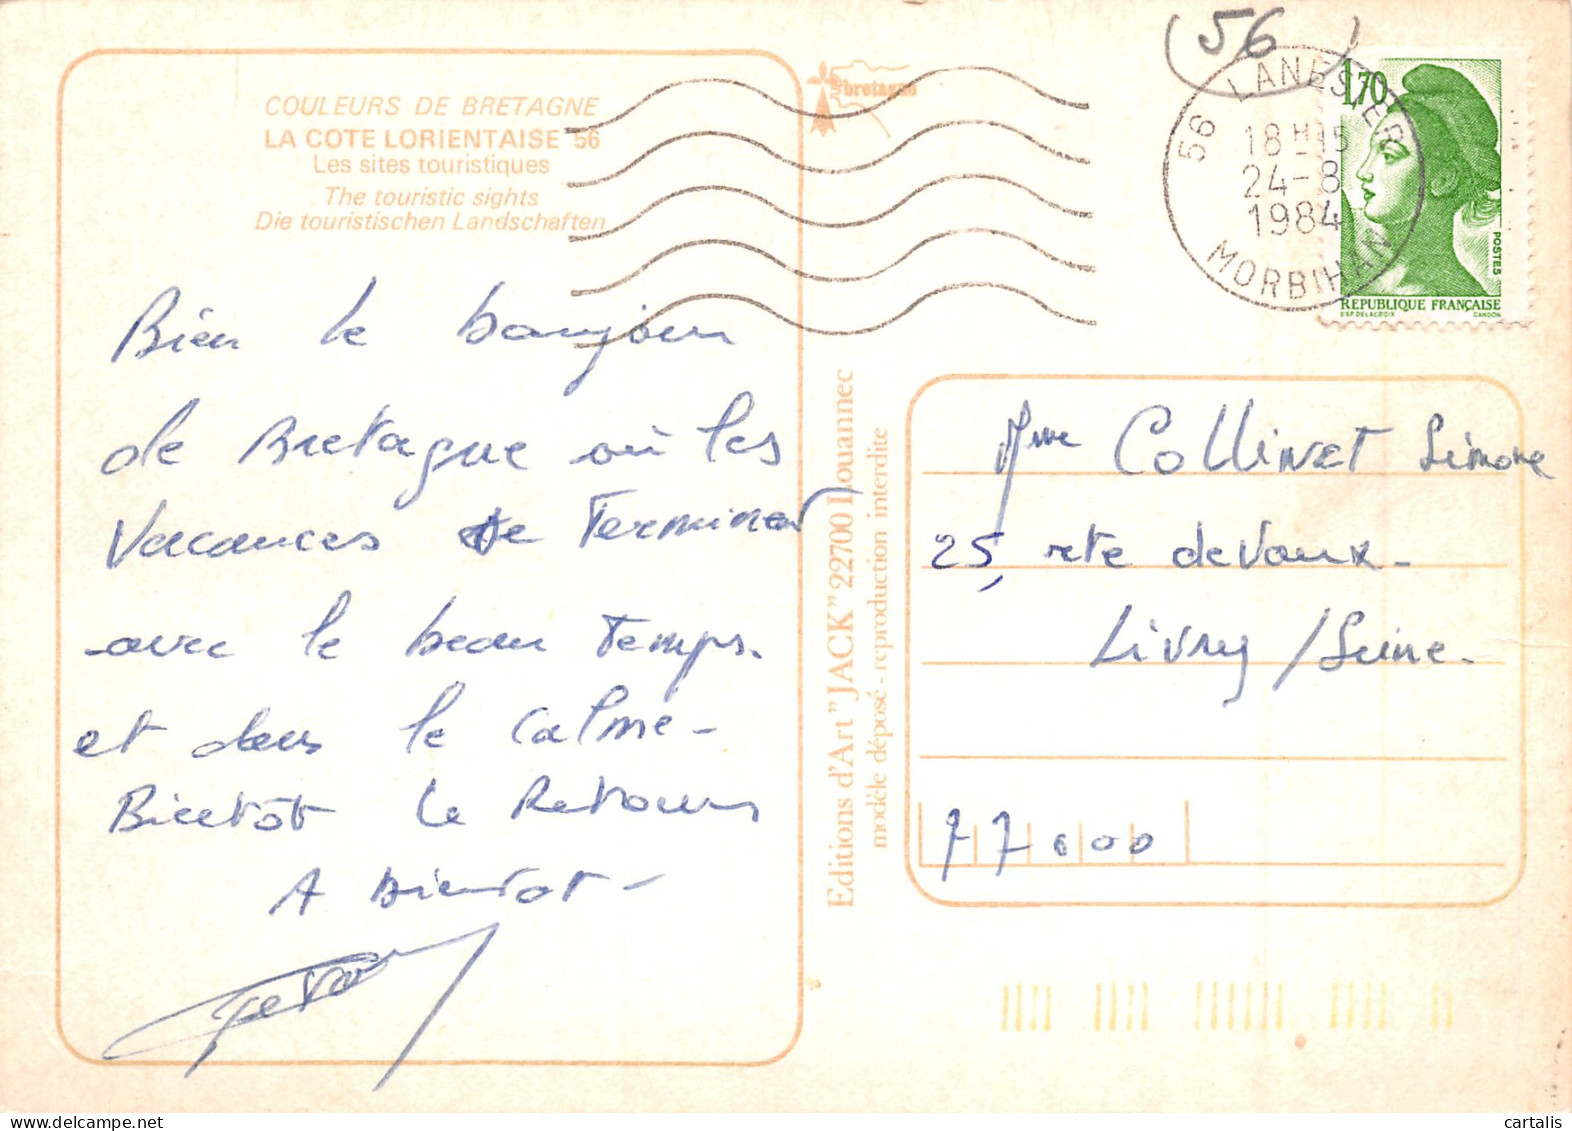 (56)
COULEURS DE BRETAGNE
LA COTE LORIENTAISE 56
Les sites touristiques
The touristic sights
Die touristischen Landschaften
bretagne
56 LANESTER
18H15
24-8
1984
MORBIHAN
1,70
POSTES
REPUBLIQUE FRANÇAISE
D'AP. DELACROIX GANDON
Bien le bonjour
de Bretagne où les
Vacances se Terminent
avec le beau Temps.
et dans le calme -
Bientôt le Retour
A Bientot -
Editions d'Art "JACK" 22700 Louannec
modèle déposé - reproduction interdite
Mme Collinet Simone
25, rte de Vaux -
Livry / Seine -
77000
cartalis